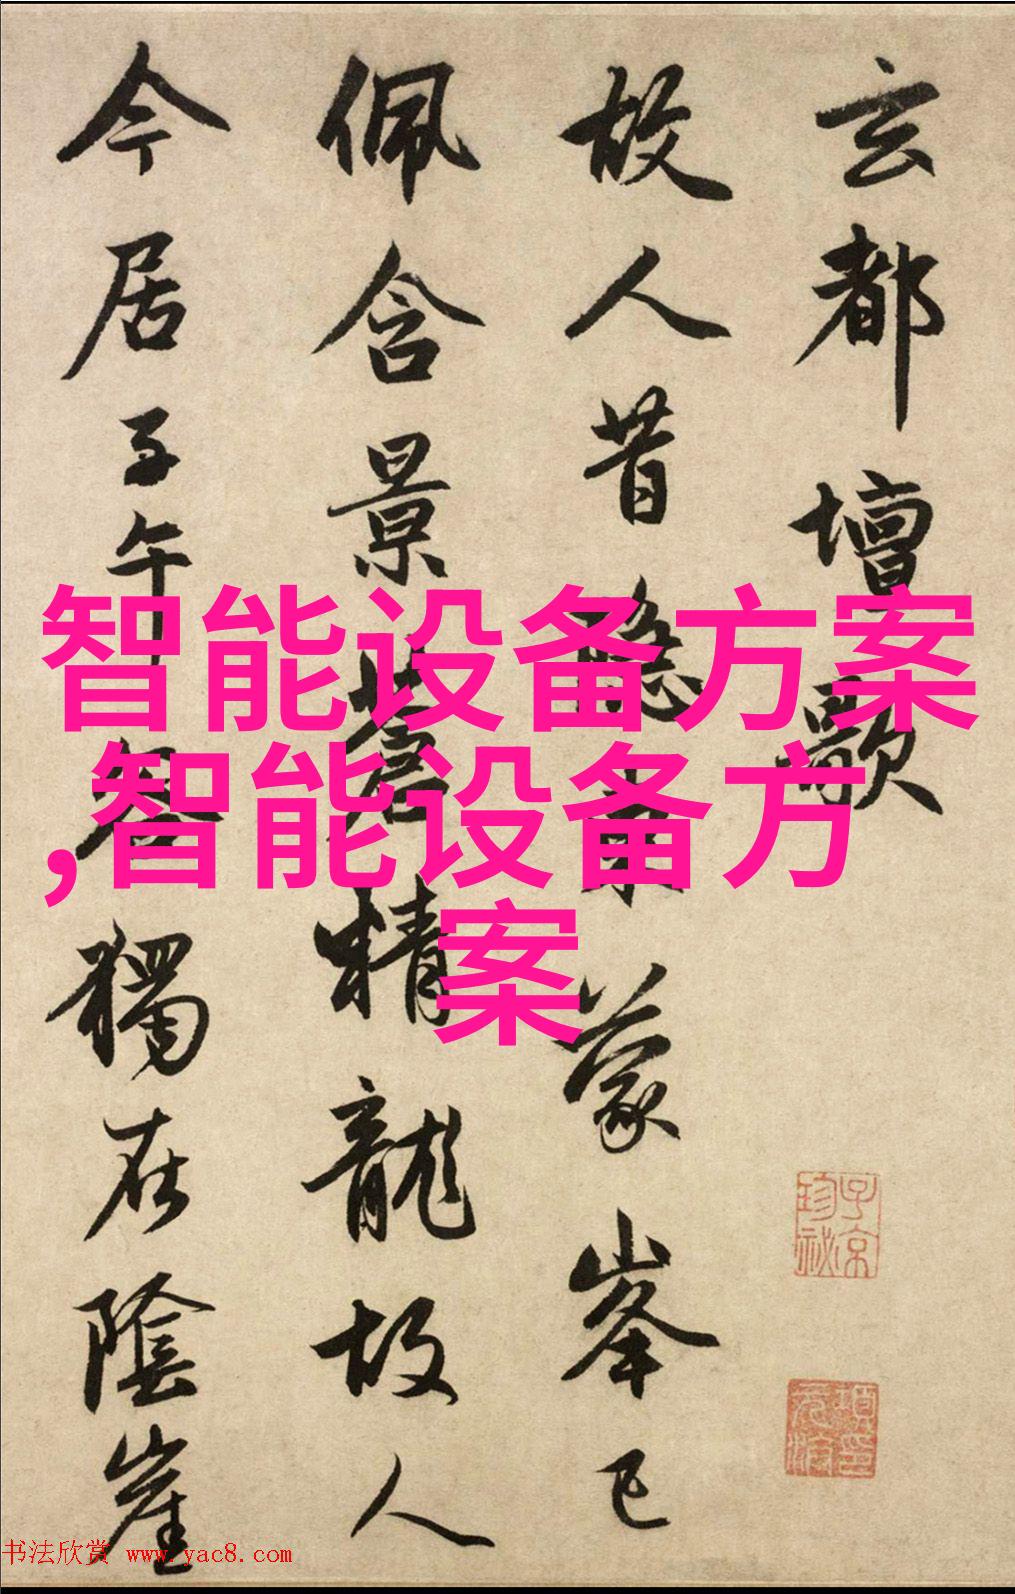 玄都壇歌
故人昔隱東蒙峯已
佩含景蒼精龍故人
今居子午谷獨在陰崖
智能设备方案
,智能设备方
案
子京珍祕
项元汴印
书法欣赏 www.yac8.com